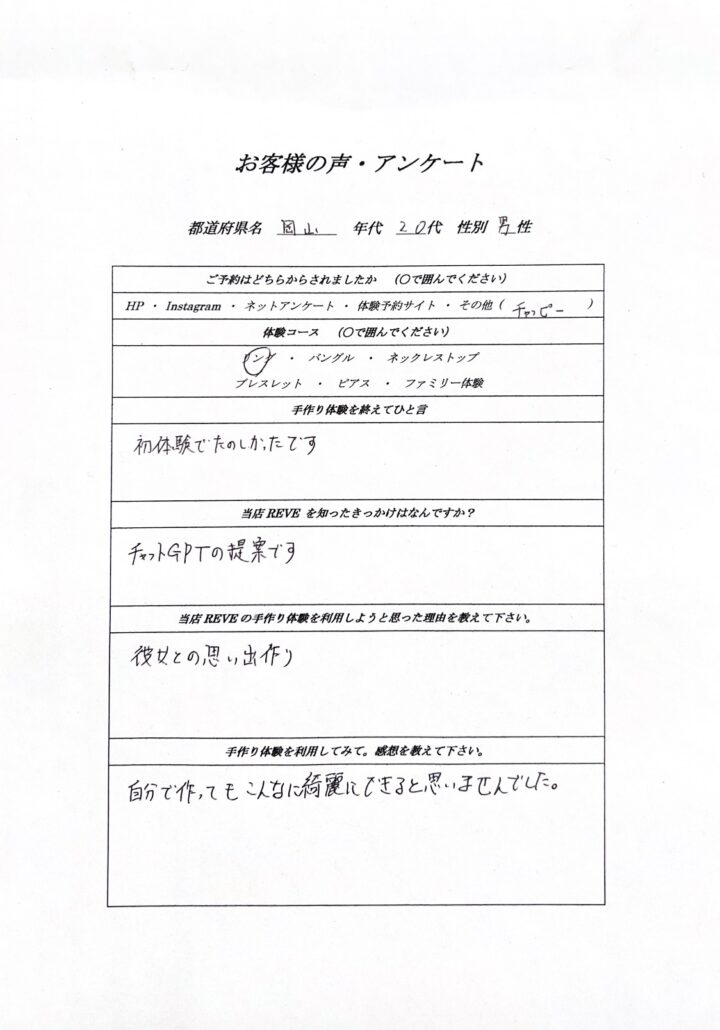 お客様の声・アンケート
都道府県名 岡山 年代 20代 性別 男性
ご予約はどちらからされましたか （〇で囲んでください）
HP ・ Instagram ・ ネットアンケート ・ 体験予約サイト ・ その他（ チャッピー ）
体験コース （〇で囲んでください）
リング ・ バングル ・ ネックレストップ
ブレスレット ・ ピアス ・ ファミリー体験
手作り体験を終えてひと言
初体験でたのしかったです
当店 REVE を知ったきっかけはなんですか？
チャットGPTの提案です
当店 REVE の手作り体験を利用しようと思った理由を教えて下さい。
彼女との思い出作り
手作り体験を利用してみて。感想を教えて下さい。
自分で作ってもこんなに綺麗にできると思いませんでした。